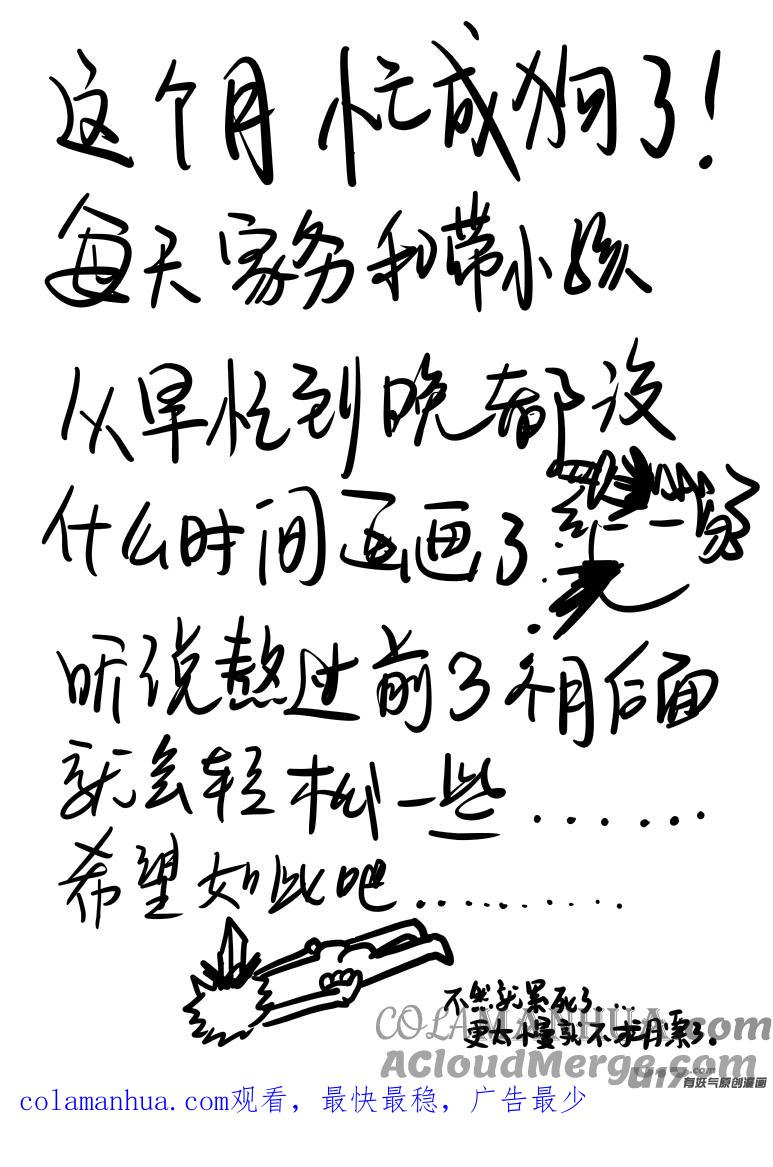 这个月忙成狗了!
每天家务和带小孩
从早忙到晚都没
什么时间画画了
听说熬过前3个月后面
就会轻松一些......
希望如此吧..........
不然就累死了....
更太慢就不求月票了。
COLAMANHUA.com
ACloudMerge.com
U17.com
有妖气原创漫画
colamanhua.com观看，最快最稳，广告最少